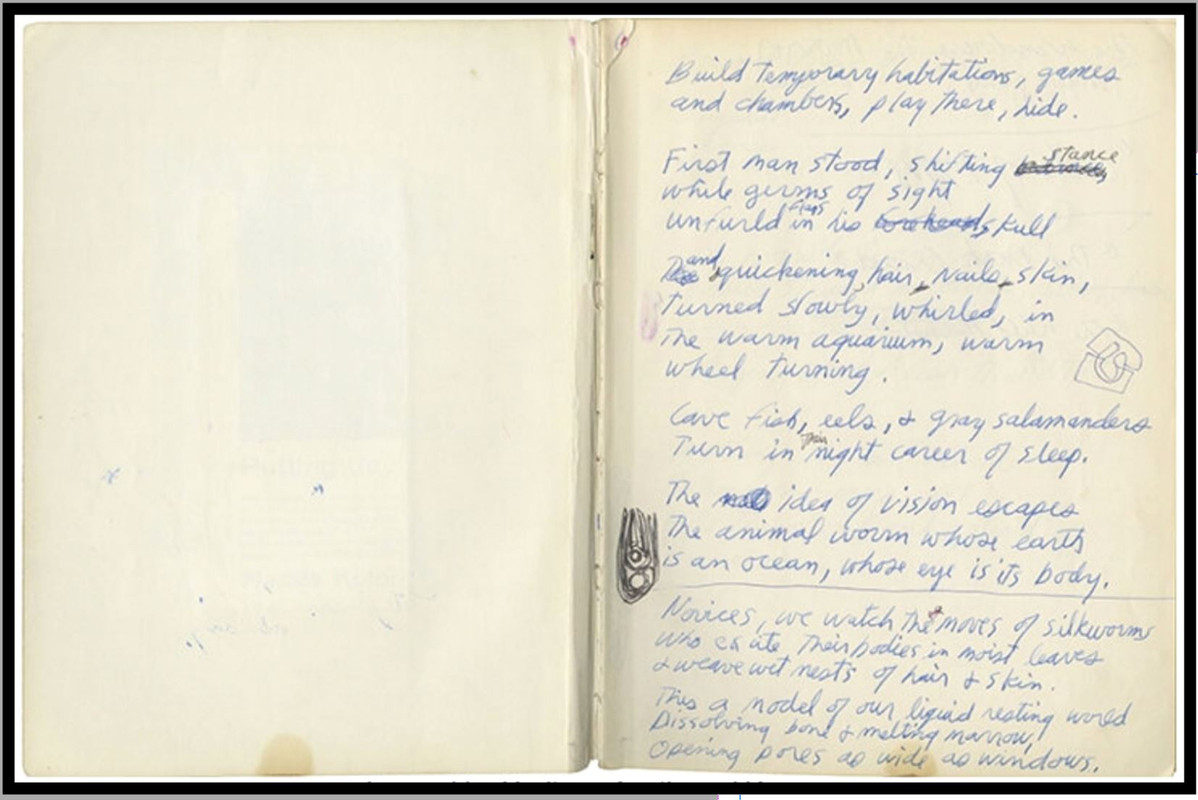 Build temporary habitations, games
and chambers, play there, hide.
First man stood, shifting stance
while germs of sight
unfurl'd flags in his skull
and quickening, hair, nails, skin,
turned slowly, whirled, in
the warm aquarium, warm
wheel turning.
Cave fish, eels, & gray salamanders
Turn in their night career of sleep.
The idea of vision escapes
the animal worm whose earth
is an ocean, whose eye is its body.
Novices, we watch the moves of silkworms
who excite their bodies in moist leaves
& weave wet nests of hair & skin.
This a model of our liquid resting world
Dissolving bone & melting marrow,
Opening pores as wide as windows.